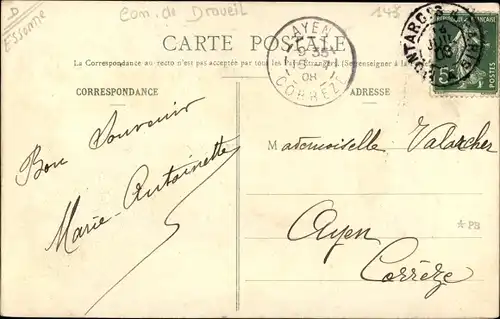 D
Essonne
Com. de Draveil
148
CARTE POSTALE
La Correspondance au recto n'est pas acceptée par tous les Pays Étrangers. (Se renseigner à la
CORRESPONDANCE
ADRESSE
AYEN
9 35
15
08
CORREZE
POSTES
5
Bon Souvenir
Marie-Antoinette
Mademoiselle Valarcher
Ayen
Corrèze
* PB